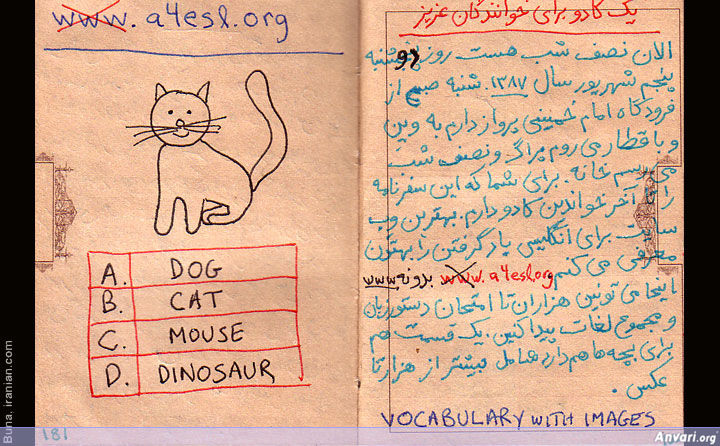 www. a4esl.org
A. DOG
B. CAT
C. MOUSE
D. DINOSAUR
181
یک کادو برای خوانندگان عزیز
الان نصف شب هست روز دو شنبه
پنجم شهریور سال ۱۳۸۷. شنبه صبح از
فرودگاه امام خمینی پرواز دارم به وین
و با قطار می روم پراگ و نصف شب
می رسم خانه. برای شما که این سفرنامه
را تا آخر خواندین کادو دارم. بهترین وب
سایت برای انگلیسی یاد گرفتن را بهتون
معرفی می کنم www.a4esl.org بدونه www
اینجا می تونین هزاران تا امتحان دستور زبان
و مجموع لغات پیدا کنین. یک قسمت هم
برای بچه ها هم دارد شامل بیشتر از هزار تا
عکس.
VOCABULARY WITH IMAGES
Buna. iranian.com
Anvari.org